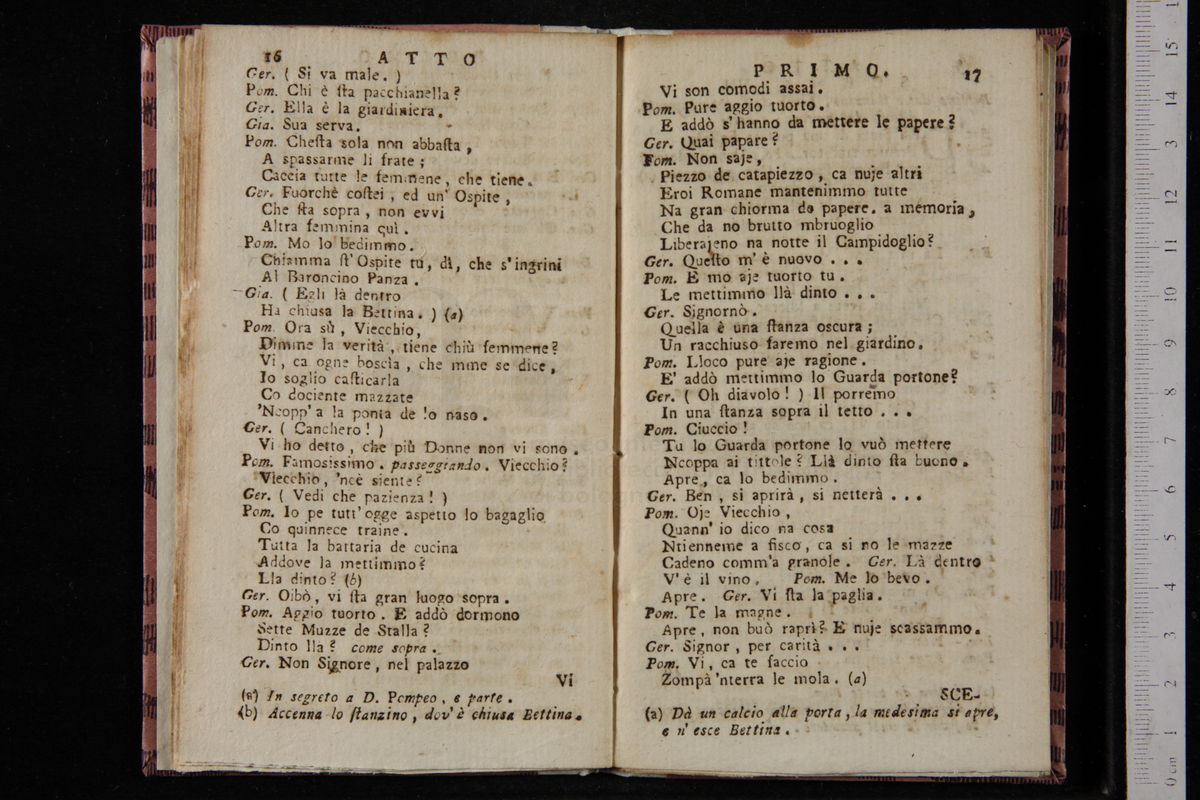 16 ATTO
Ger. ( Si va male. )
Pom. Chi è ſta pacchianella?
Ger. Ella è la giardiniera.
Gia. Sua serva.
Pom. Cheſta sola non abbaſta,
A spassarme li frate;
Caccia tutte le femmene, che tiene.
Ger. Fuorchè coſtei, ed un' Ospite,
Che ſta sopra, non evvi
Altra femmina quì.
Pom. Mo lo bedimmo.
Chiamma ſt' Ospite tu, dì, che s'ingrini
Al Baroncino Panza.
Gia. ( Egli là dentro
Ha chiusa la Bettina. ) (a)
Pom. Ora sù, Viecchio,
Dimme la verità, tiene chiù femmene?
Vi, ca ogne boscìa, che mme se dice,
Io soglio caſticarla
Co dociente mazzate
'Ncopp' a la ponta de lo naso.
Ger. ( Canchero! )
Vi ho detto, che più Donne non vi sono.
Pom. Famosissimo. passeggiando. Viecchio?
Viecchio, 'nce siente?
Ger. ( Vedi che pazienza! )
Pom. Io pe tutt' ogge aspetto lo bagaglio
Co quinnece traine.
Tutta la battaria de cucina
Addove la mettimmo?
Lla dinto? (b)
Ger. Oibò, vi ſta gran luogo sopra.
Pom. Aggio tuorto. E addò dormono
Sette Muzze de Stalla?
Dinto lla? come sopra.
Ger. Non Signore, nel palazzo
Vi
(a) In segreto a D. Pompeo, e parte.
(b) Accenna lo ſtanzino, dov'è chiusa Bettina.
PRIMO. 17
Vi son comodi assai.
Pom. Pure aggio tuorto.
E addò s'hanno da mettere le papere?
Ger. Quai papare?
Pom. Non saje,
Piezzo de catapiezzo, ca nuje altri
Eroi Romane mantenimmo tutte
Na gran chiorma de papere. a memoria,
Che da no brutto mbruoglio
Liberajeno na notte il Campidoglio?
Ger. Queſto m'è nuovo ...
Pom. E mo aje tuorto tu.
Le mettimmo llà dinto ...
Ger. Signornò.
Quella è una ſtanza oscura;
Un racchiuso faremo nel giardino.
Pom. Lloco pure aje ragione.
E' addò mettimmo lo Guarda portone?
Ger. ( Oh diavolo! ) Il porremo
In una ſtanza sopra il tetto ...
Pom. Ciuccio!
Tu lo Guarda portone lo vuò mettere
Ncoppa ai tittole? Llà dinto ſta buono.
Apre, ca lo bedimmo.
Ger. Ben, si aprirà, si netterà ...
Pom. Oje Viecchio,
Quann' io dico na cosa
Ntienneme a fisco, ca si no le mazze
Cadeno comm'a granole. Ger. Là dentro
V'è il vino. Pom. Me lo bevo.
Apre. Ger. Vi ſta la paglia.
Pom. Te la magne.
Apre, non buò raprì? E nuje scassammo.
Ger. Signor, per carità ...
Pom. Vi, ca te faccio
Zompà 'nterra le mola. (a)
SCE-
(a) Dà un calcio alla porta, la medesima si apre,
e n' esce Bettina.